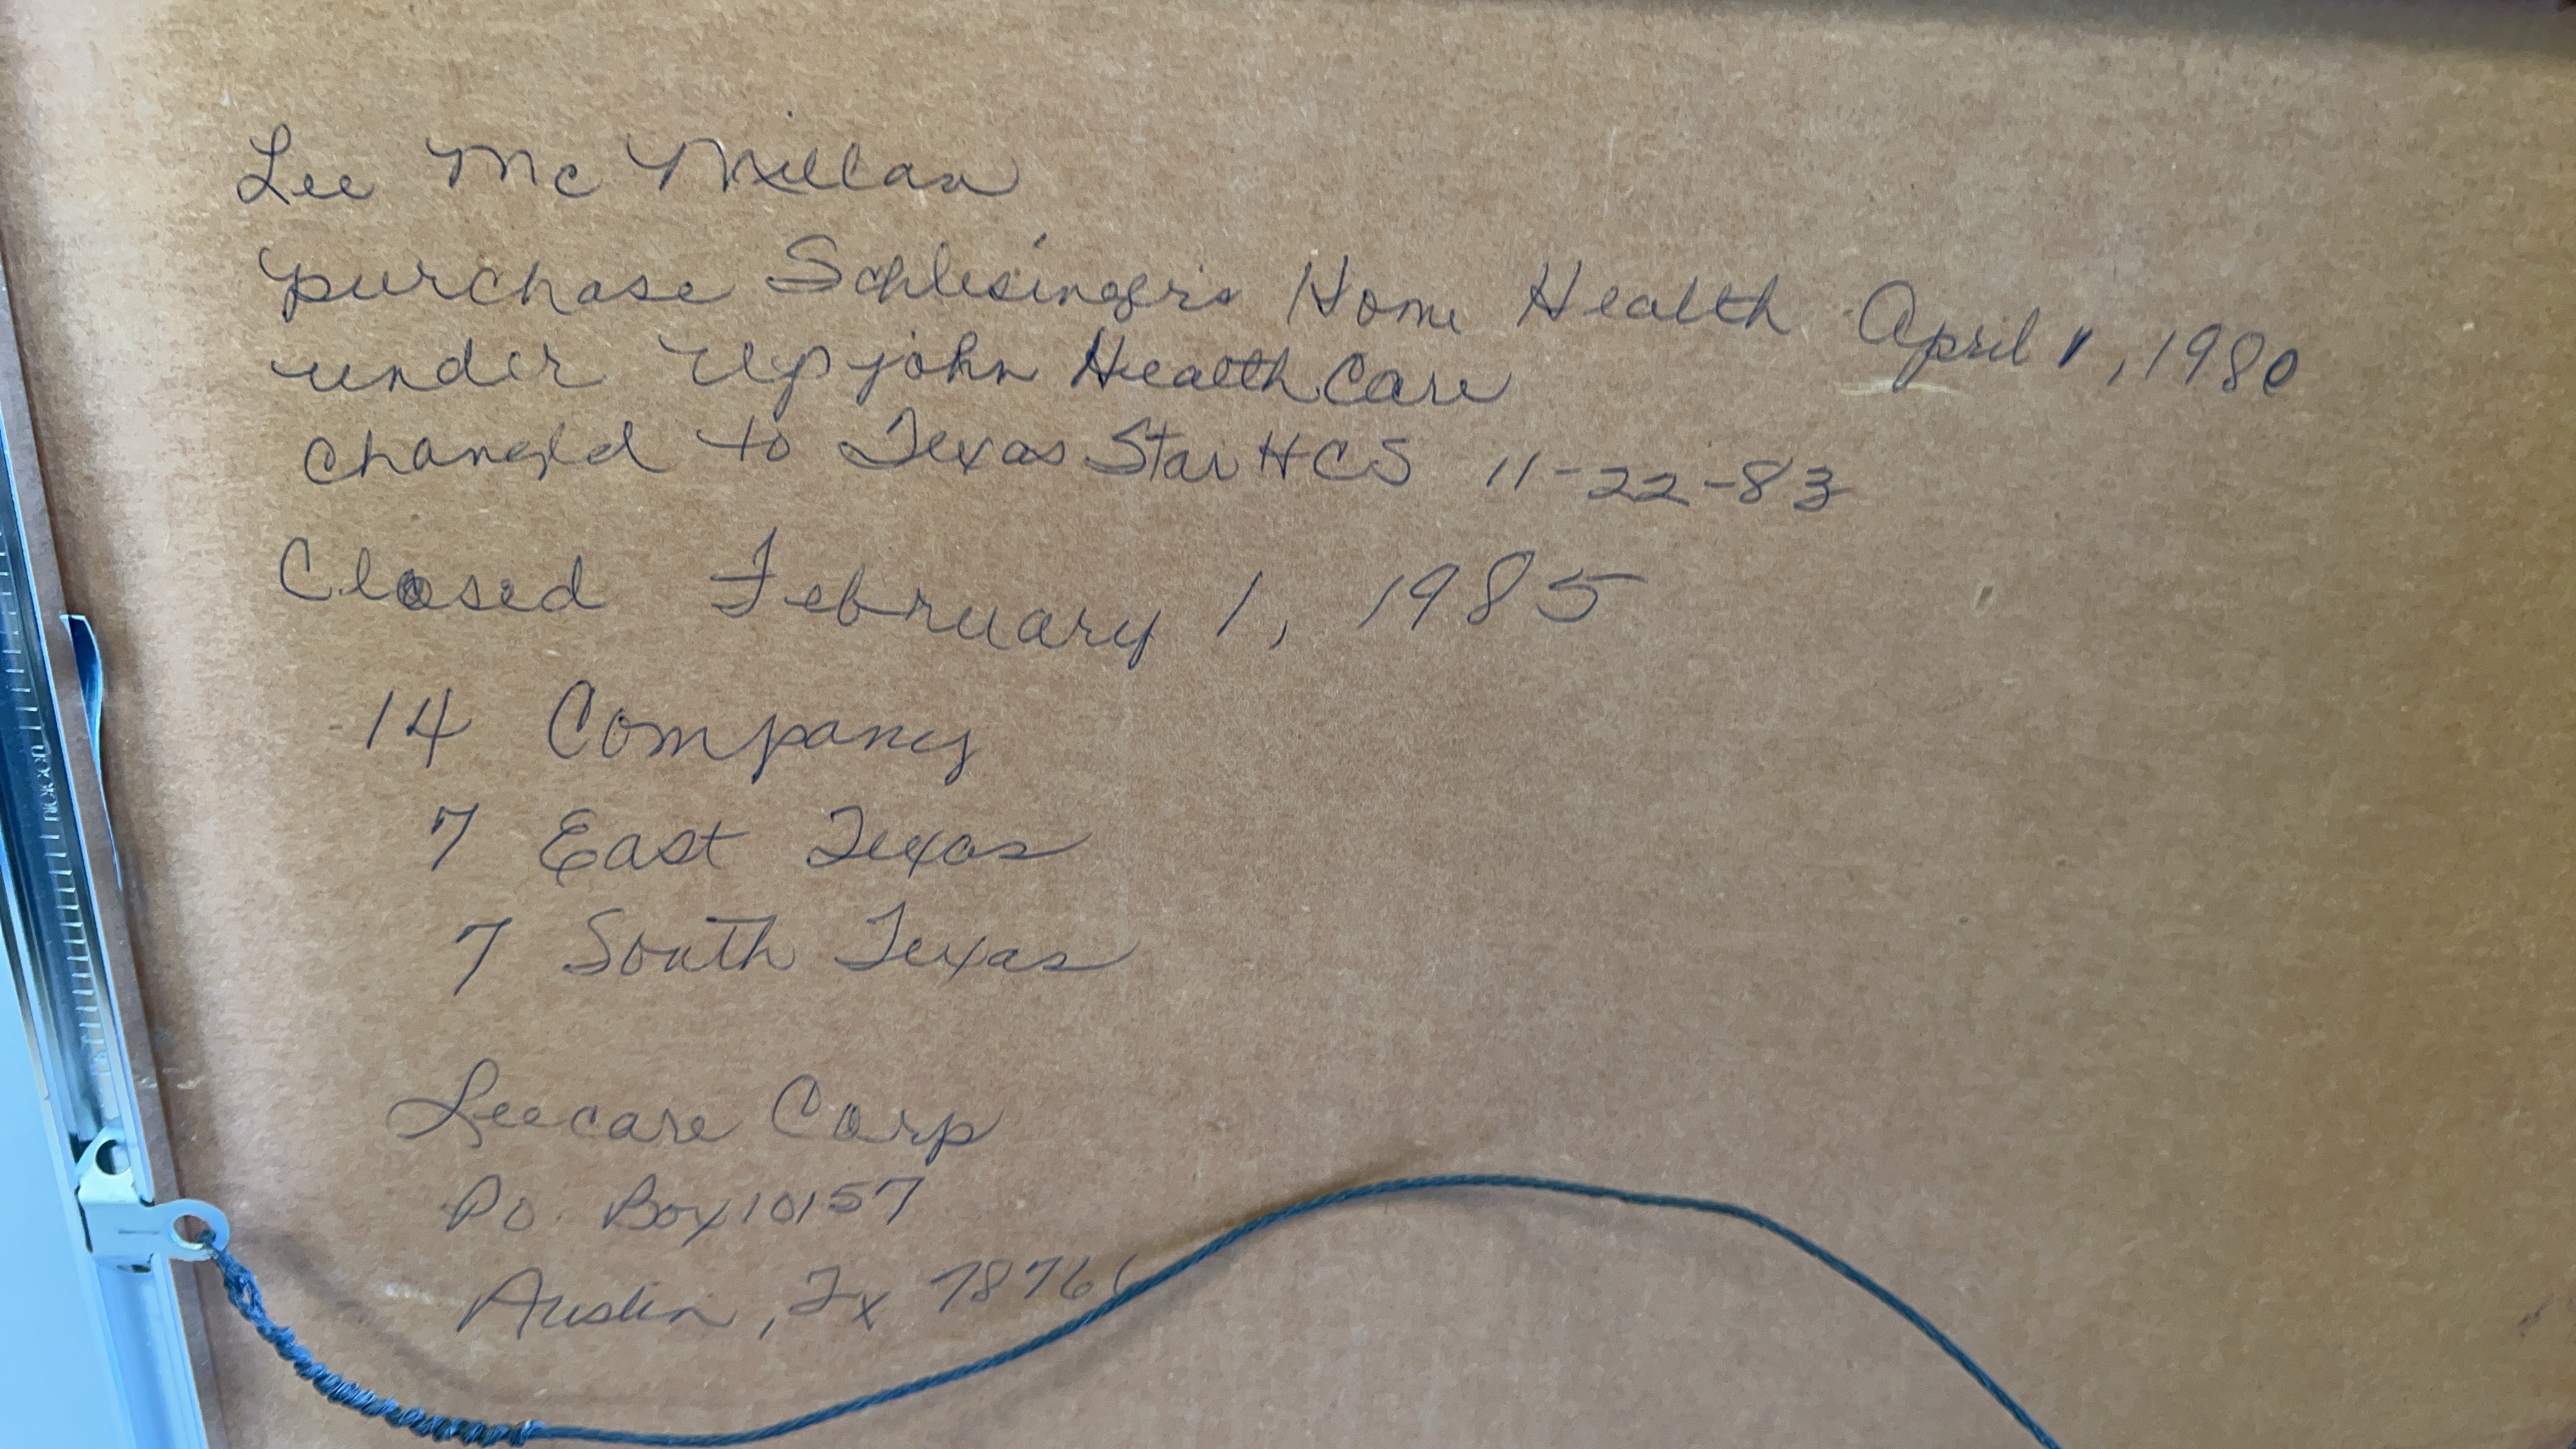 Lee McMillan
purchase Schlesinger's Home Health April 1, 1980
under Upjohn HealthCare
changed to Texas Star HCS 11-22-83
Closed February 1, 1985
14 Company
7 East Texas
7 South Texas
Leecare Corp
PO. Box 10157
Austin, Tx 78766